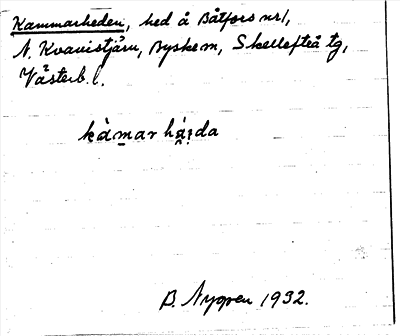 Kammarheden, hed å Båtfors nr 1,
N. Kvavisträsk, Byske sn, Skellefteå tg,
Västerb. l.
kàmar hái̯da
B. Nygren 1932.